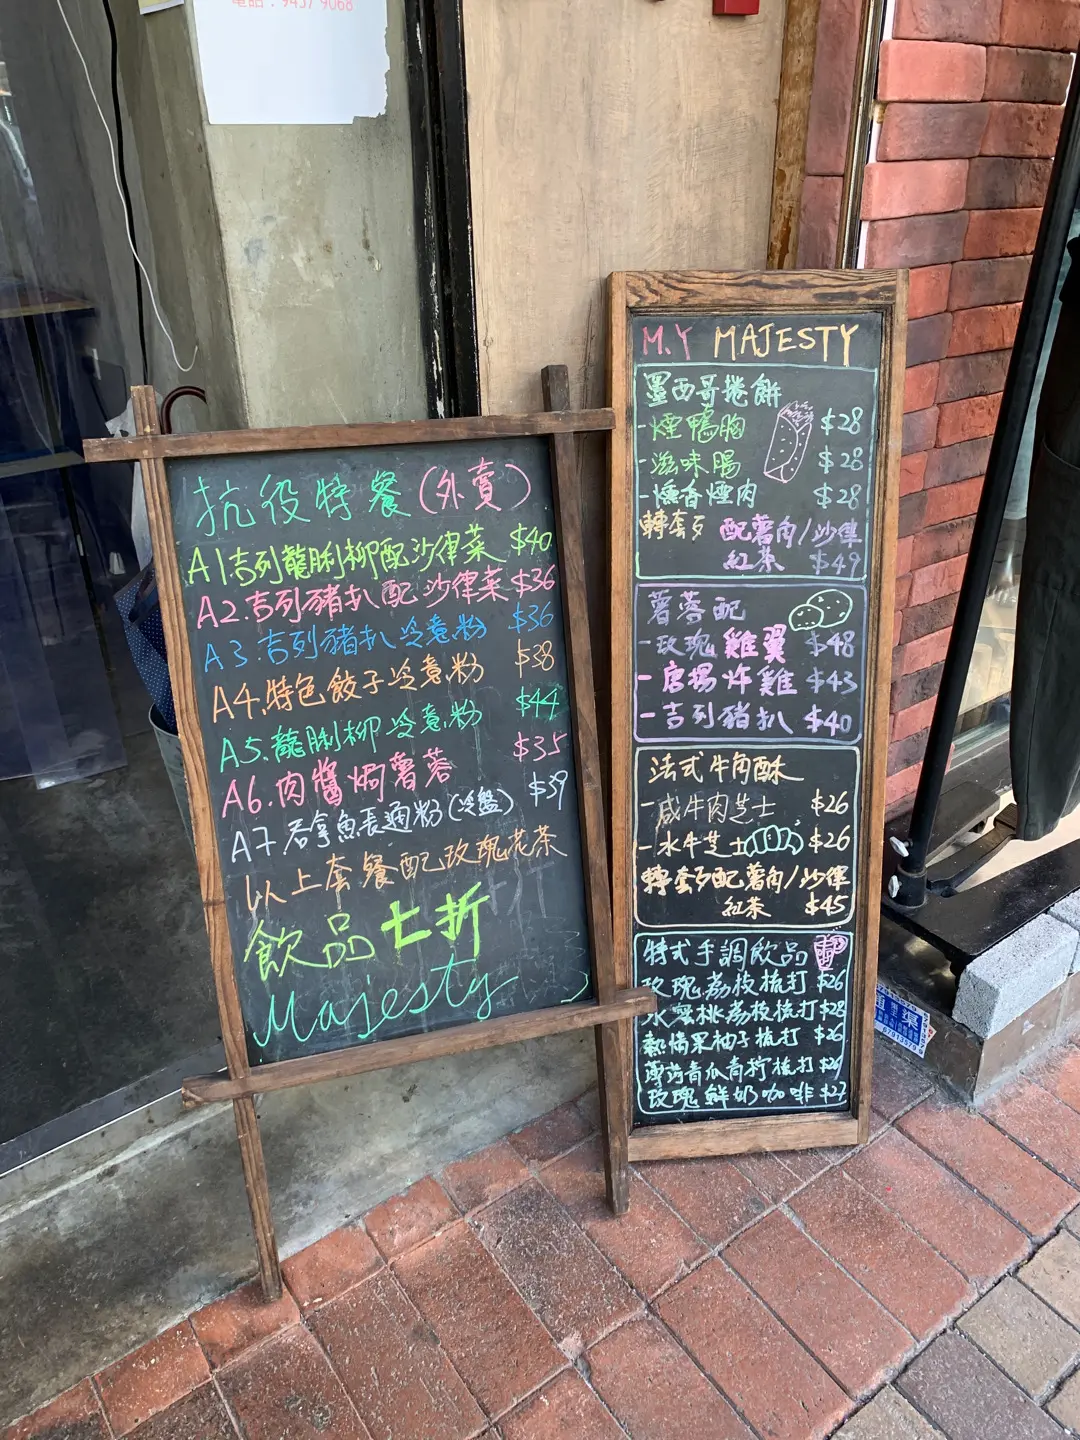 電話：9437 9068
抗役特餐(外賣)
A1.吉列龍脷柳配沙律菜 $40
A2.吉列豬扒配沙律菜 $36
A3.吉列豬扒冷意粉 $36
A4.特色餃子冷意粉 $38
A5.龍脷柳冷意粉 $44
A6.肉醬焗薯蓉 $35
A7.吞拿魚長通粉(冷盤) $39
以上套餐配玫瑰花茶
飲品七折
Majesty
M.Y MAJESTY
墨西哥捲餅
-煙鴨胸 $28
-滋味腸 $28
-燻香煙肉 $28
轉套多 配薯角/沙律
紅茶 $49
薯蓉配
-玫瑰雞翼 $48
-唐揚炸雞 $43
-吉列豬扒 $40
法式牛角酥
-咸牛肉芝士 $26
-水牛芝士 $26
轉套多配薯角/沙律
紅茶 $45
特式手調飲品
玫瑰荔枝梳打 $26
水蜜桃荔枝梳打 $28
熱情果柚子梳打 $26
薄荷青瓜青柠梳打 $26
玫瑰鮮奶咖啡 $27